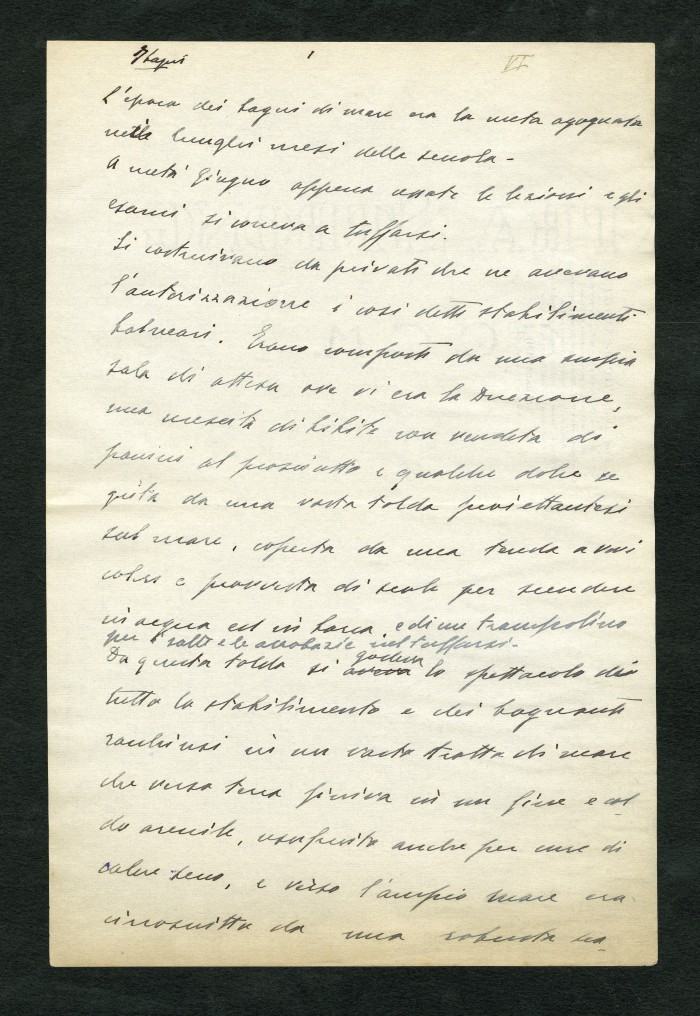 I bagni 1 VI
L'epoca dei bagni di mare era la meta agognata
nelle lunghi mesi della scuola -
A metà giugno appena cessate le lezioni e gli
esami si correva a tuffarsi.
Si costruivano da privati che ne avevano
l'autorizzazione i così detti stabilimenti
balneari. Erano composti da una ampia
sala di attesa ove vi era la Direzione,
una mescita di bibite con vendita di
panini al prosciutto e qualche dolce se
guita da una vasta tolda proiettantesi
sul mare, coperta da una tenda a vivi
colori e provvista di scale per scendere
in acqua ed in barca e di un trampolino
per i salti e le acrobazie nel tuffarsi.
Da questa tolda si aveva godeva lo spettacolo di
tutto lo stabilimento e dei bagnanti
racchiusi in un vasto tratto di mare
che verso terra finiva in un fine e cal
do arenile, usufruito anche per cure di
calore seco, e verso l'ampio mare era
circoscritto da una robusta sta